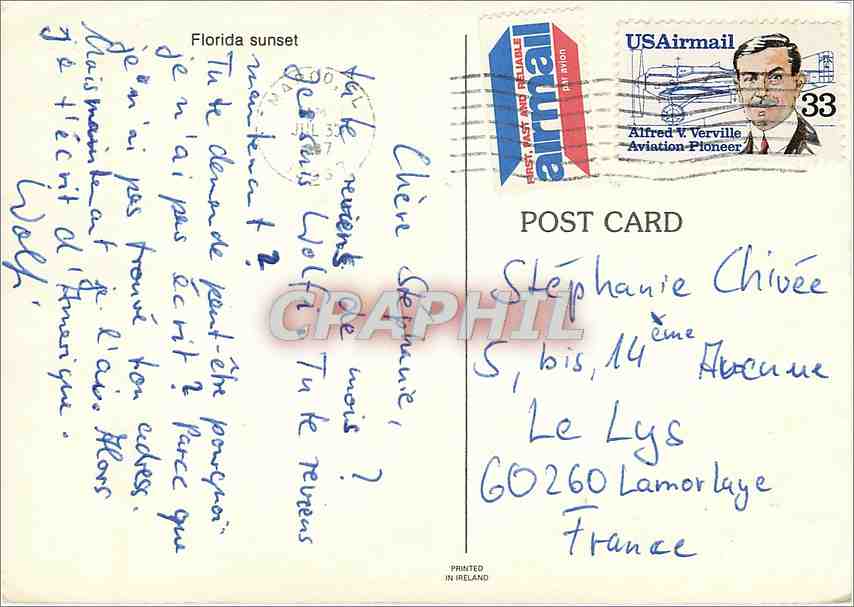 Florida sunset
Chère Stéphanie,
tu te reviens de mois ?
Je suis Wolfi. Tu te reviens
maintenant ?
Tu te demande peut-être pourquoi
je n'ai pas écrit ? Parce que
je n'ai pas trouvé ton adress.
Mais maintenant je l'ai. Alors
je t'écrit d'Amerique.
Wolfi
FIRST, FAST AND RELIABLE
airmail
par avion
USAirmail
33
Alfred V. Verville
Aviation Pioneer
POST CARD
Stéphanie Chivée
5, bis, 14ème Avenue
Le Lys
60260 Lamorlaye
France
PRINTED
IN IRELAND
CPAPHIL